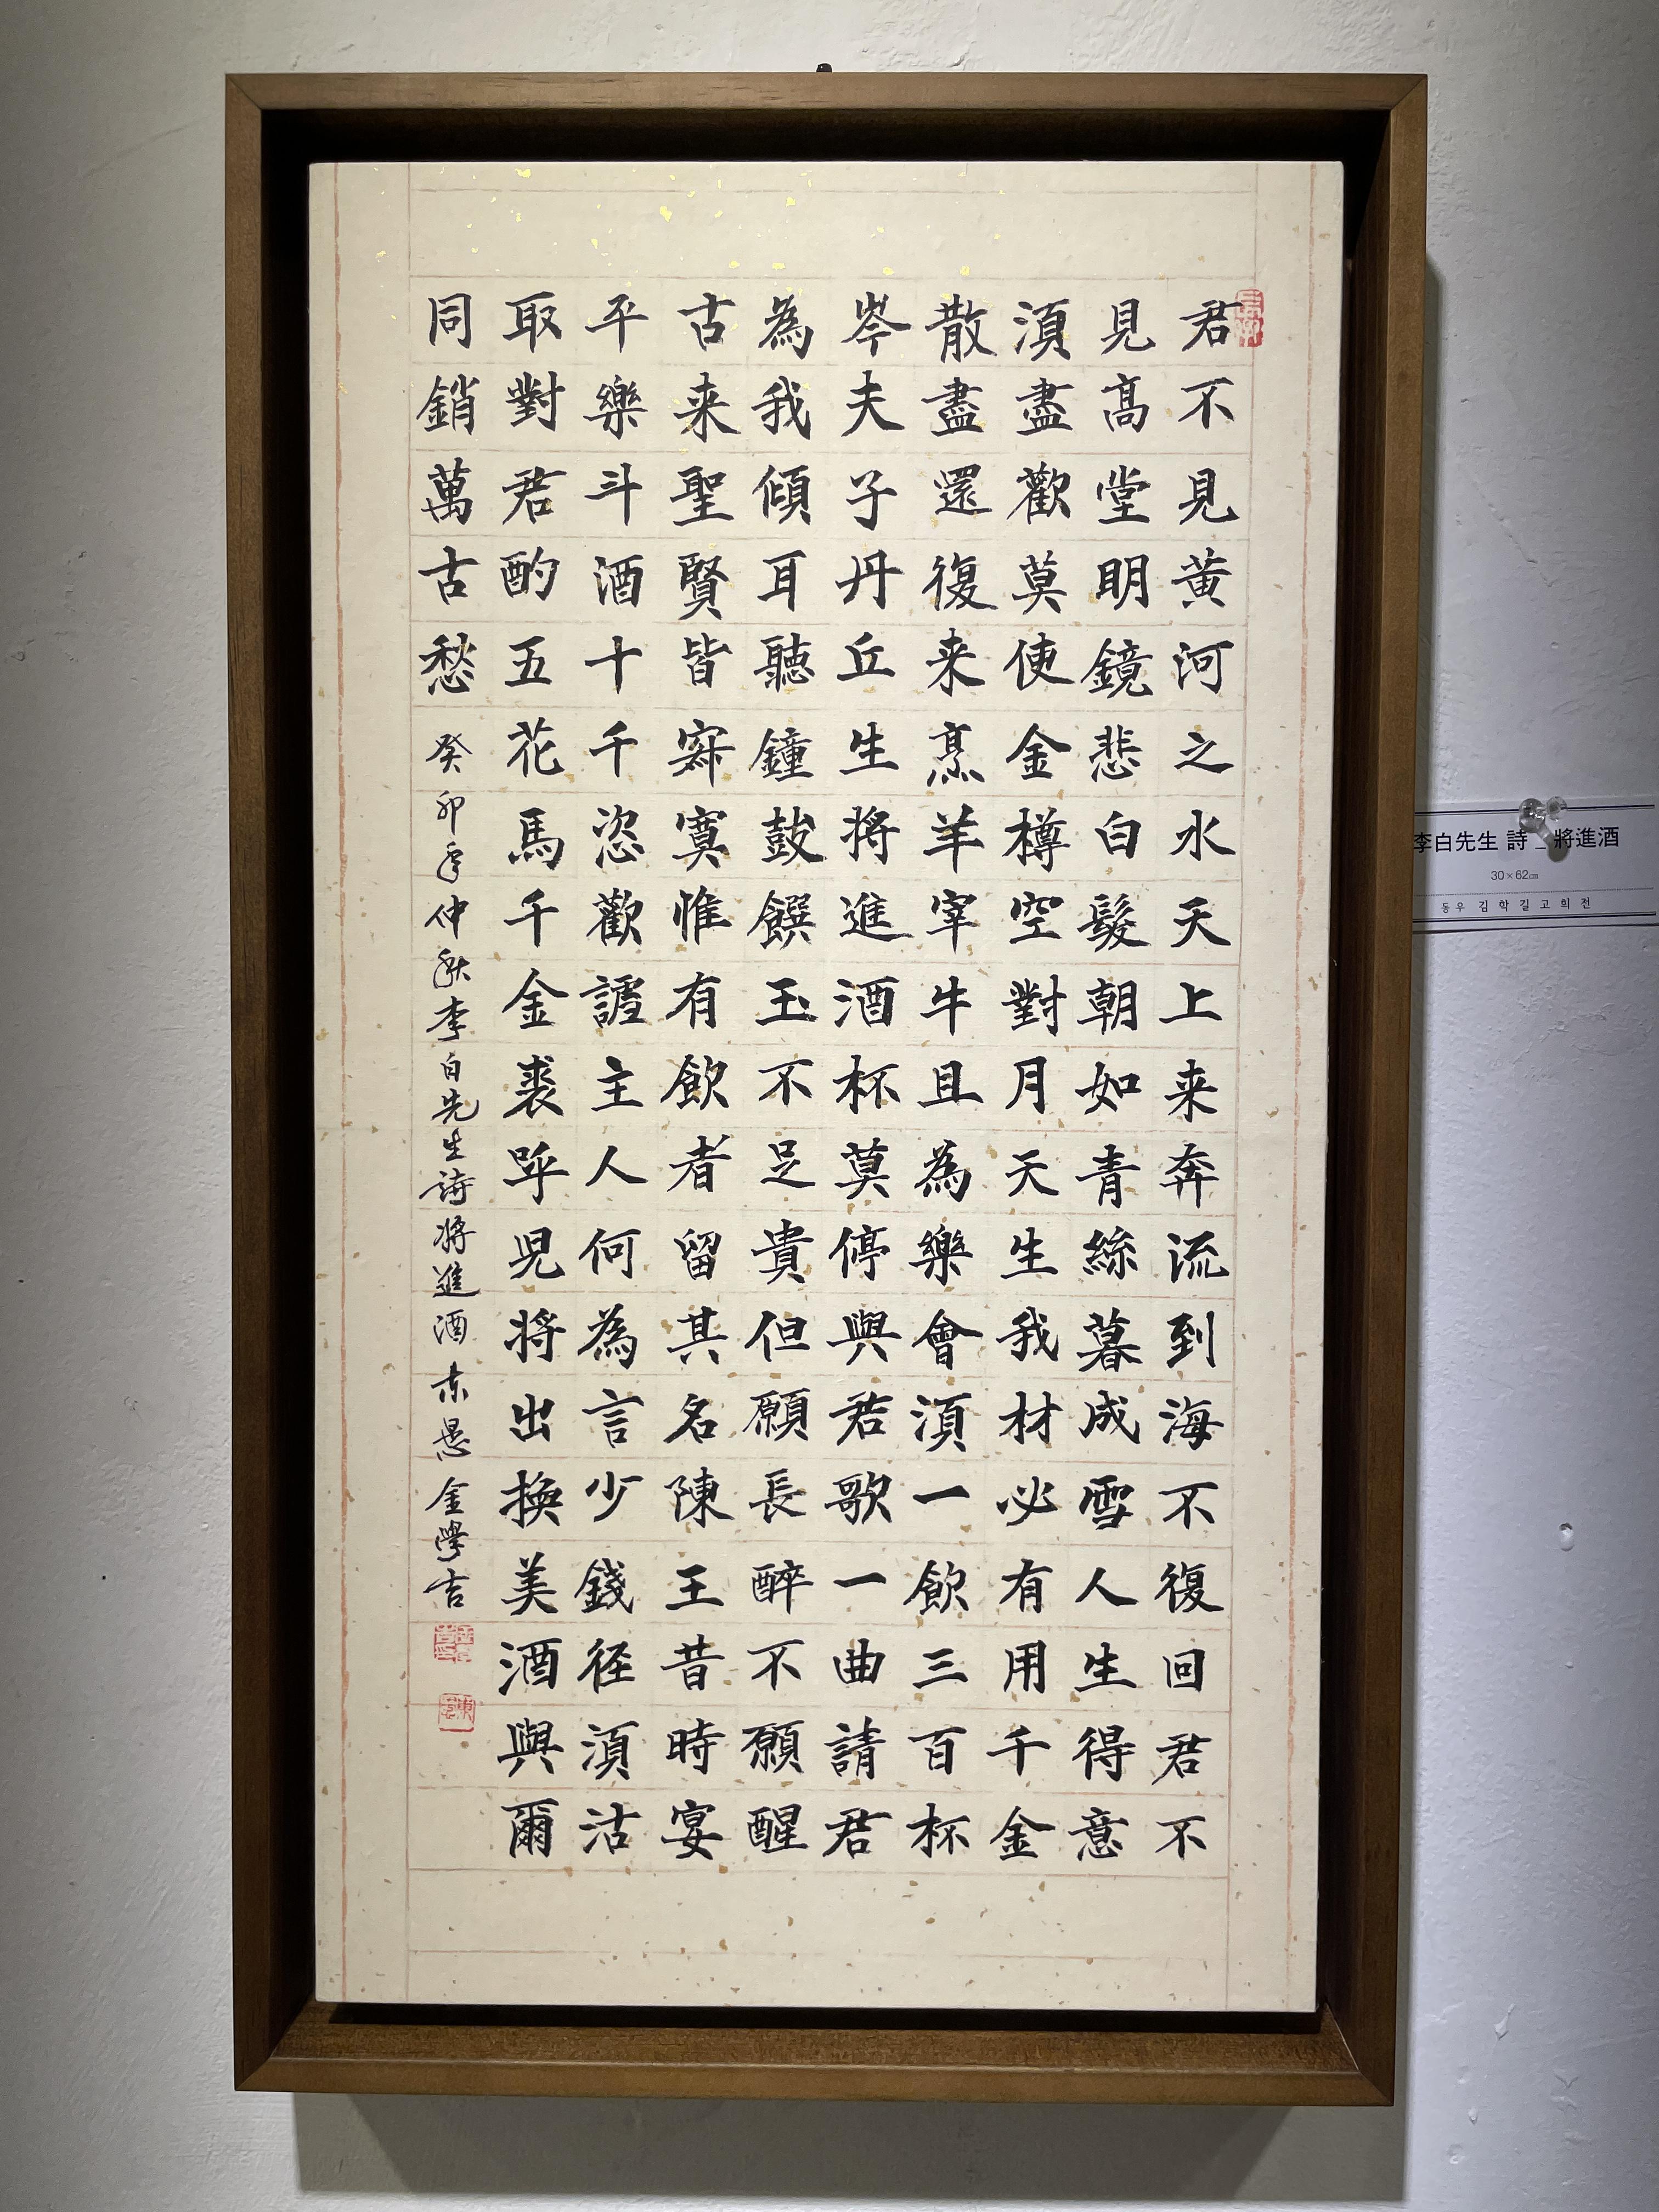 君不見黄河之水天上来奔流到海不復回君不
見髙堂明鏡悲白髮朝如青絲暮成雪人生得意
須盡歡莫使金樽空對月天生我材必有用千金
散盡還復来烹羊宰牛且為樂會須一飲三百杯
岑夫子丹丘生將進酒杯莫停與君歌一曲請君
為我傾耳聽鐘鼓饌玉不足貴但願長醉不願醒
古来聖賢皆寂寞惟有飲者留其名陳王昔時宴
平樂斗酒十千恣歡謔主人何為言少錢径須沽
取對君酌五花馬千金裘呼兒將出換美酒與爾
同銷萬古愁 癸卯年仲秋李白先生詩將進酒 東愚 金學吉
李白先生 詩 _ 將進酒
30×62㎝
동우 김학길 고희전